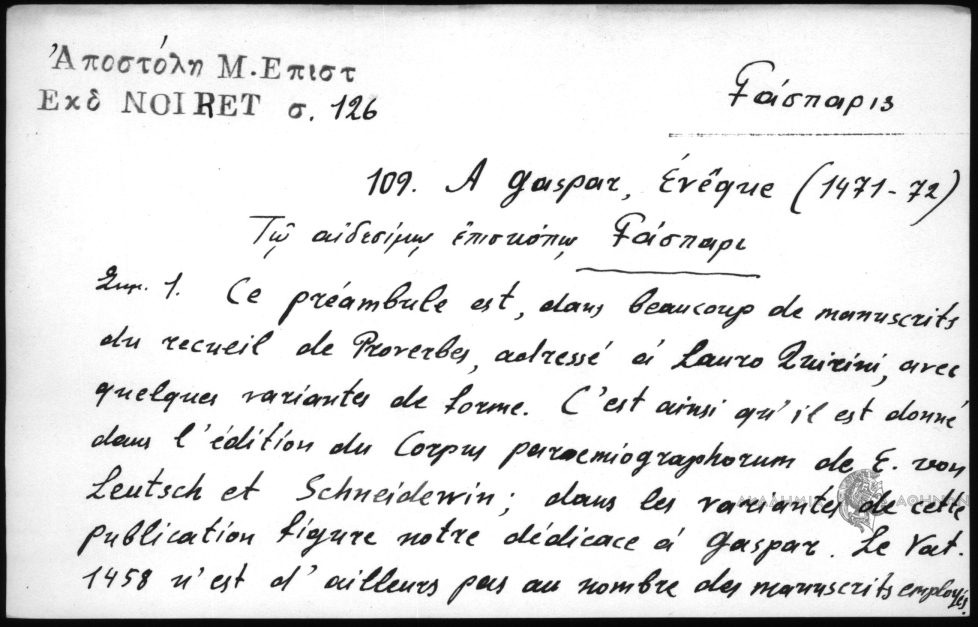 Ἀποστόλη Μ. Επιστ
Εκδ NOIRET σ. 126
Γάσπαρις
109. A Gaspar, Évêque (1471-72)
Τῷ αἰδεσίμῳ ἐπισκόπῳ Γάσπαρι
Σημ. 1. Ce préambule est, dans beaucoup de manuscrits
du recueil de Proverbes, adressé à Lauro Quirini, avec
quelques variantes de forme. C'est ainsi qu'il est donné
dans l'édition du Corpus paroemiographorum de E. von
Leutsch et Schneidewin; dans les variantes de cette
publication figure notre dédicace à Gaspar. Le Vat.
1458 n'est d'ailleurs pas au nombre des manuscrits employés.
ΑΚΑΔΗΜΙΑ ΑΘΗΝΩΝ